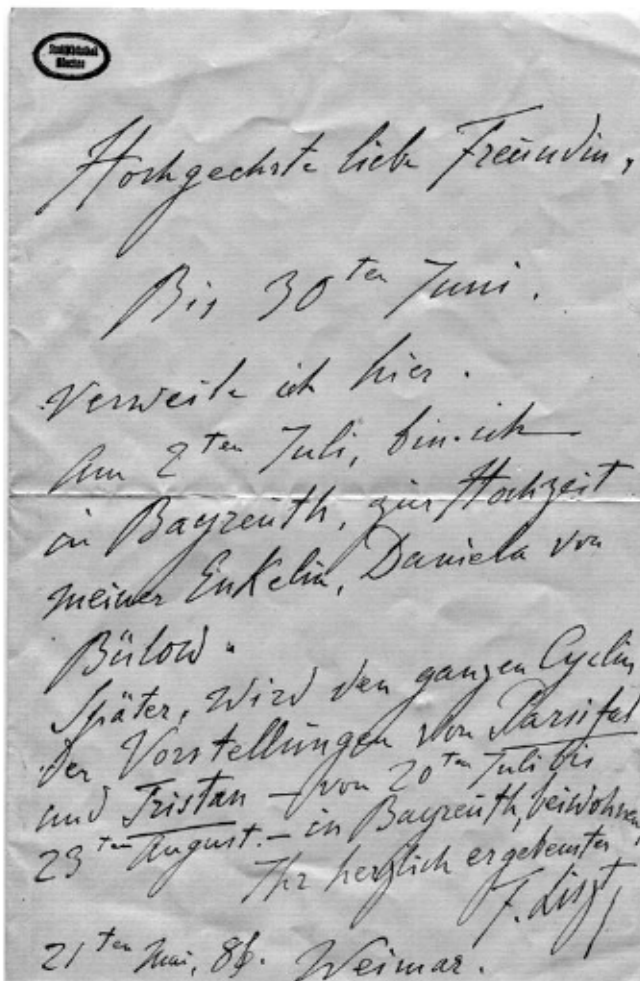 Stadtbibliothek
München
Hochgeehrte liebe Freundin,
Bis 30ten Juni.
Verweile ich hier.
Am 2ten Juli, bin ich
in Bayreuth, zur Hochzeit
meiner Enkelin, Daniela von
Bülow.
Später, wird den ganzen Cyclus
der Vorstellungen von Parsifal
und Tristan – von 20ten Juli bis
23ten August. – in Bayreuth, beiwohnen,
Ihr herzlich ergebenster
F. Liszt
21ten Mai, 86. Weimar.